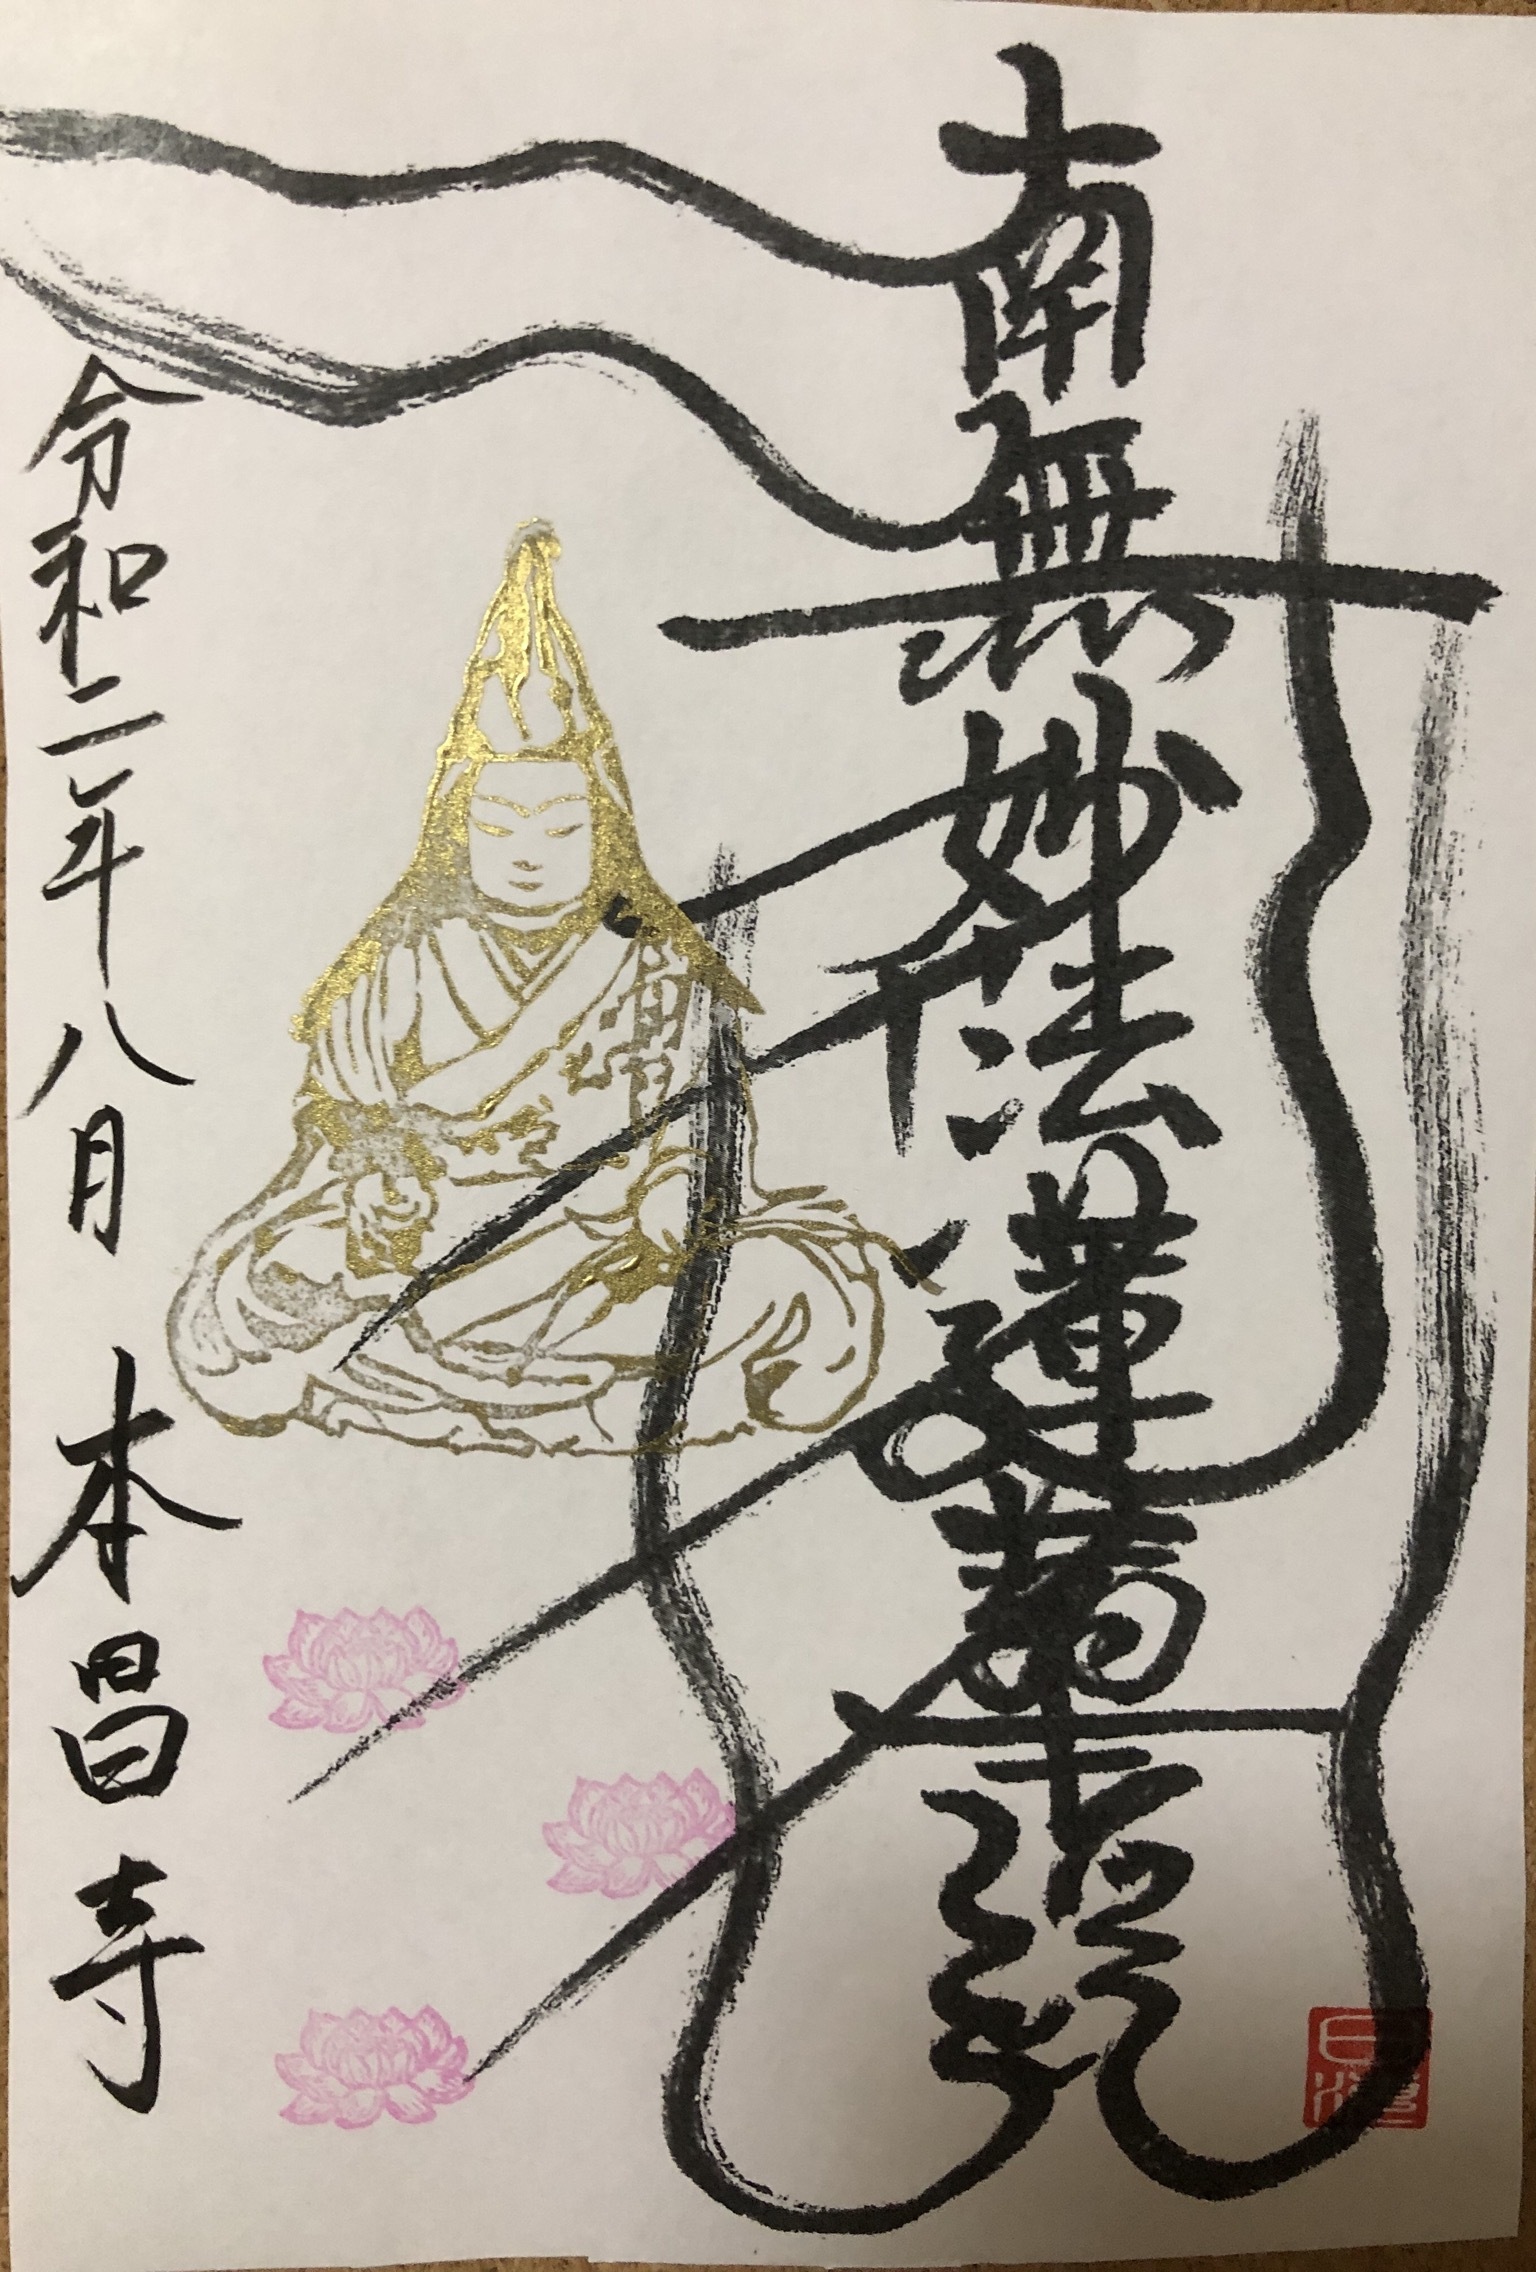 南無妙法蓮華経
令和二年八月 本昌寺